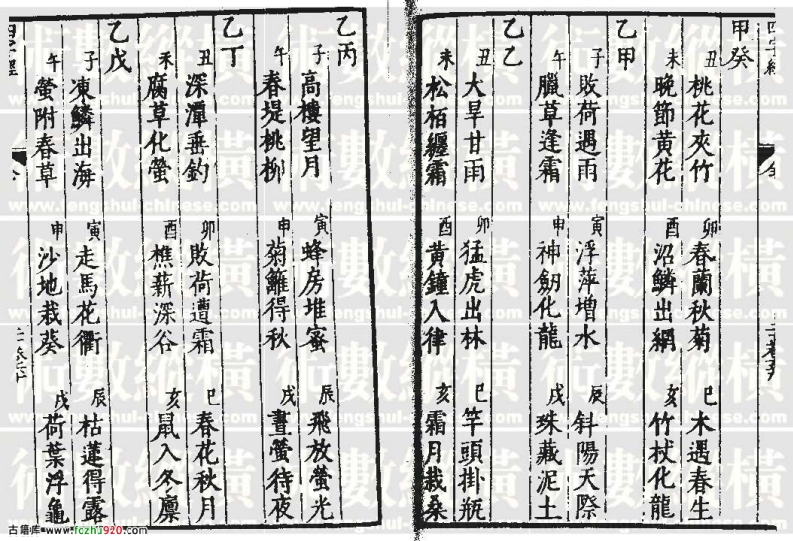 四字經
甲癸
丑 桃花夾竹 卯 春蘭秋菊 巳 木遇春生
未 晚節黃花 酉 沼鱗出網 亥 竹杖化龍
乙甲
子 敗荷遇雨 寅 浮萍增水 辰 斜陽天際
午 臘草逢霜 申 神劒化龍 戌 珠藏泥土
乙乙
丑 大旱甘雨 卯 猛虎出林 巳 竿頭掛瓶
未 松栢纏霜 酉 黃鐘入律 亥 霜月栽桑
乙丙
子 高樓望月 寅 蜂房堆蜜 辰 飛放螢光
午 春堤桃柳 申 菊籬得秋 戌 晝螢待夜
乙丁
丑 深潭垂釣 卯 敗荷遭霜 巳 春花秋月
未 腐草化螢 酉 樵薪深谷 亥 鼠入冬廪
乙戊
子 凍鱗出海 寅 走馬花衢 辰 枯蓮得露
午 螢附春草 申 沙地栽葵 戌 荷葉浮龜
術數縱橫
www.fengshui-chinese.com
古籍库-www.fczhu920.com